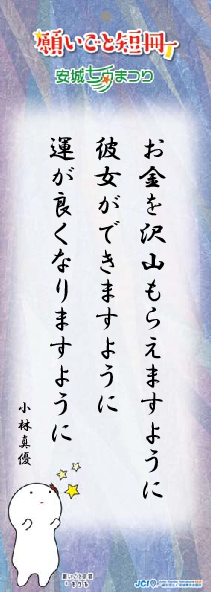 願いごと短冊
安城七夕まつり
お金を沢山もらえますように
彼女ができますように
運が良くなりますように
小林真優
願いごと短冊
JCI